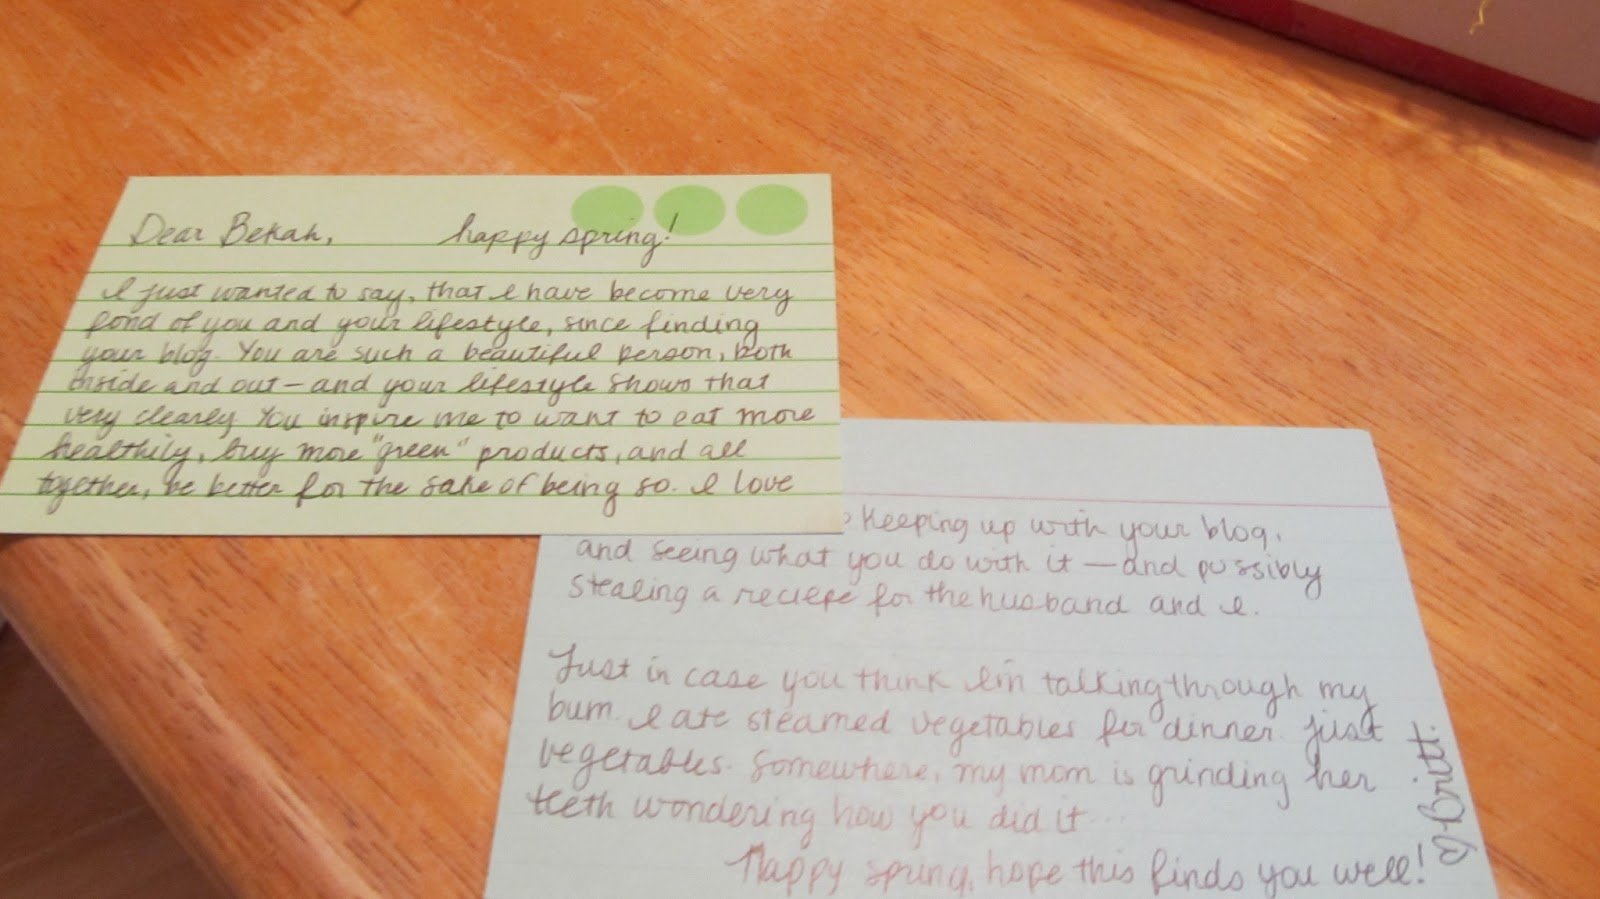 Dear Bekah, happy spring!
I just wanted to say, that I have become very
fond of you and your lifestyle, since finding
your blog. You are such a beautiful person, both
inside and out — and your lifestyle shows that
very clearly. You inspire me to want to eat more
healthily, buy more "green" products, and all
together, be better for the sake of being so. I love
keeping up with your blog,
and seeing what you do with it — and possibly
stealing a reciepe for the husband and I.
Just in case you think I'm talking through my
bum. I ate steamed vegetables for dinner. Just
vegetables. Somewhere, my mom is grinding her
teeth wondering how you did it...
Happy spring, hope this finds you well!
♡-Britt.